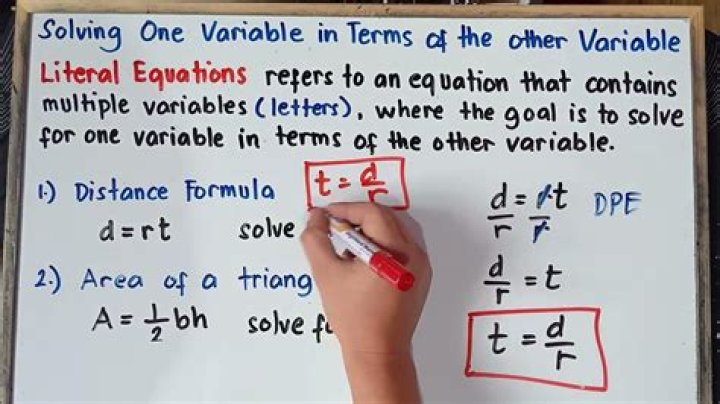 Solving One Variable in Terms of the other Variable
Literal Equations refers to an equation that contains
multiple variables (letters), where the goal is to solve
for one variable in terms of the other variable.
1.) Distance Formula t = d/r
d = rt solve
d/r = rt/r DPE
2.) Area of a triang
d/r = t
A = 1/2 bh solve
t = d/r